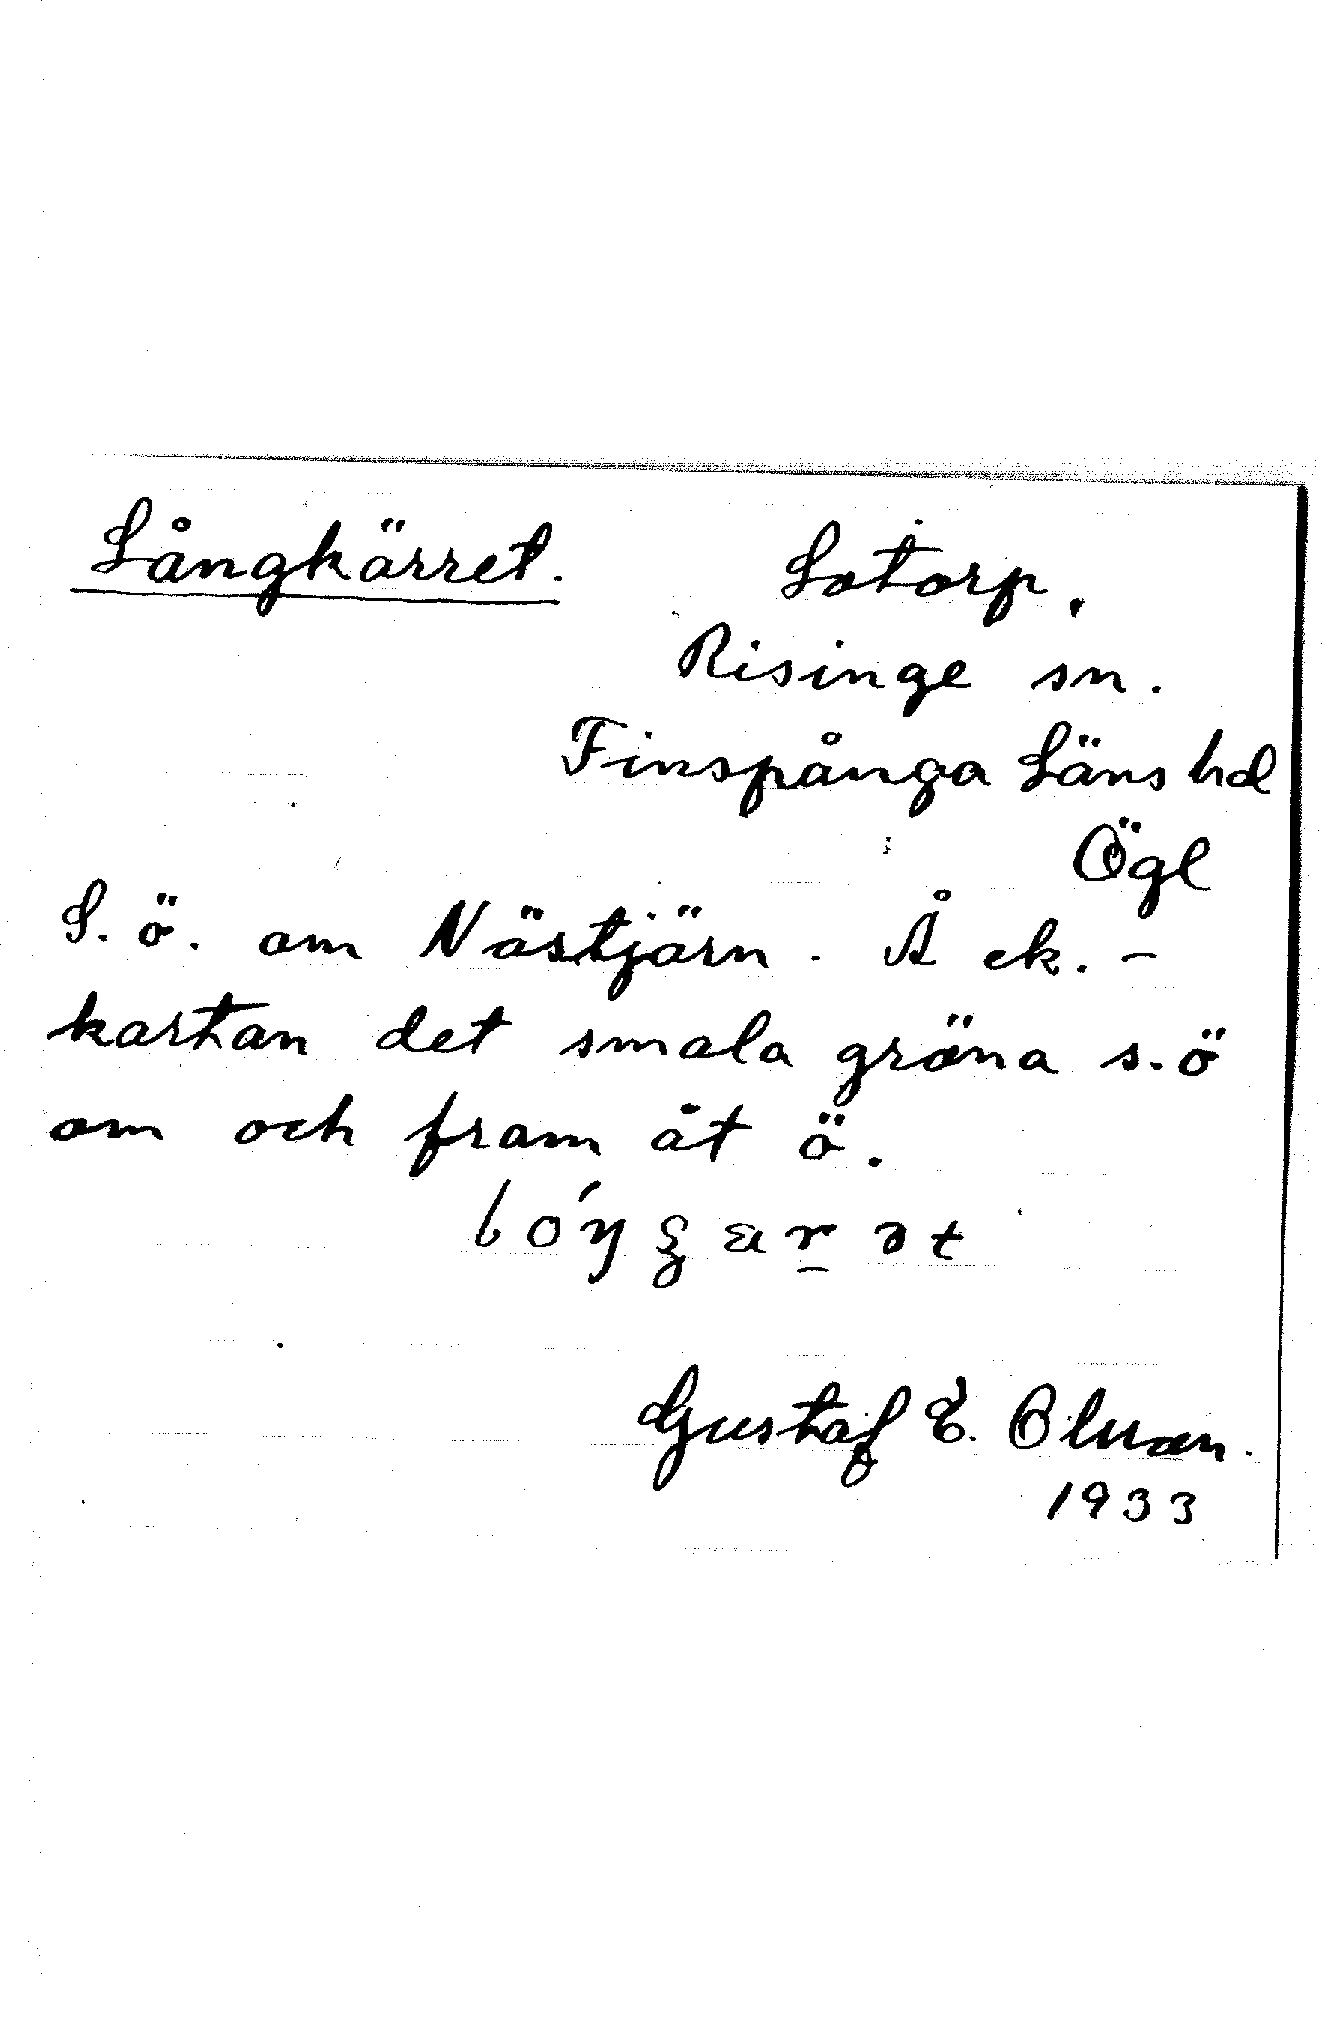 Långkärret. Lotorp.
Risinge sn.
Finspånga Läns hd
Ögl
S. ö. om Nästjärn. Å ek. -
kartan det smala gröna s. ö
om och fram åt ö.
Gustaf E. Olsson.
1933